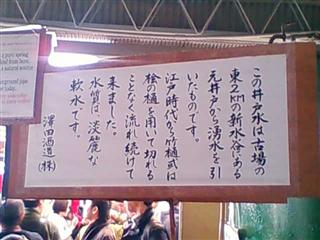 この井戸水は古場の
東2Kmの新水谷にある
元井戸から湧水を引
いたものです。
江戸時代から竹樋或は
桧の樋を用いて切れる
ことなく流れ続けて
来ました。
水質は淡麗な
軟水です。
澤田酒造(株)
pure spring
from here.
natural source
ground pipe